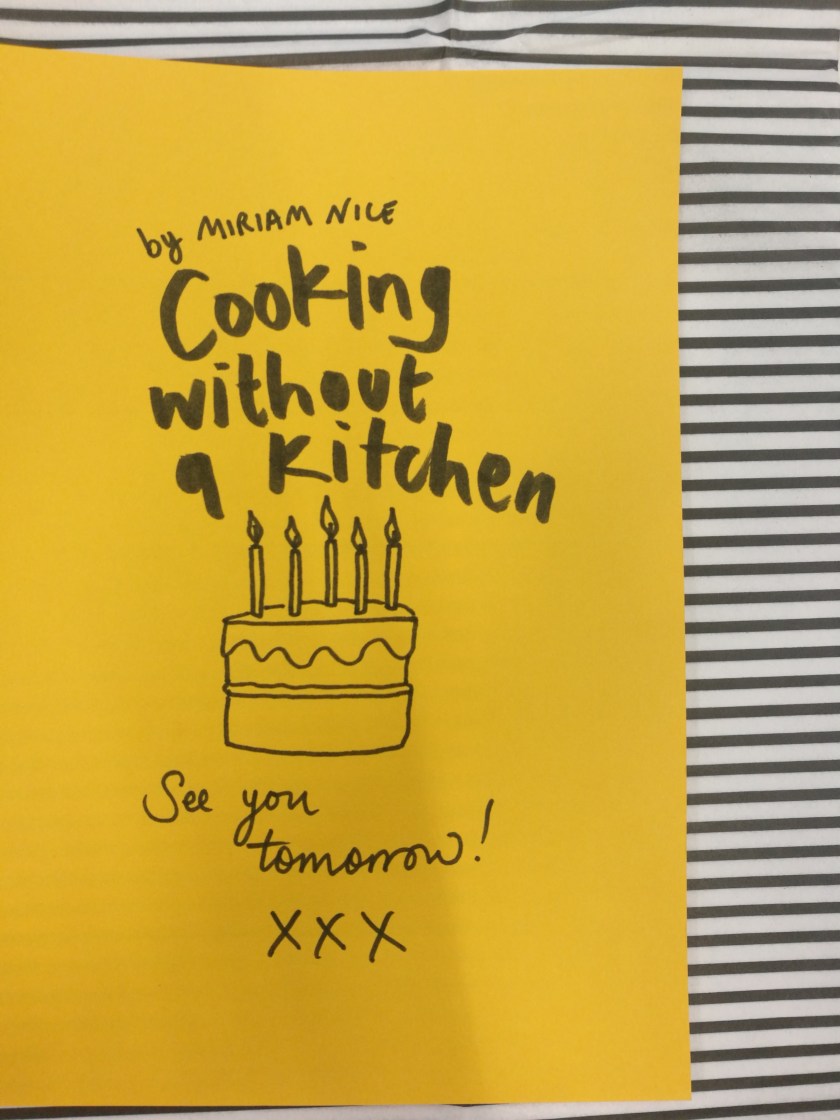 by MIRIAM NICE
Cooking
without
a kitchen
See you
tomorrow!
XXX